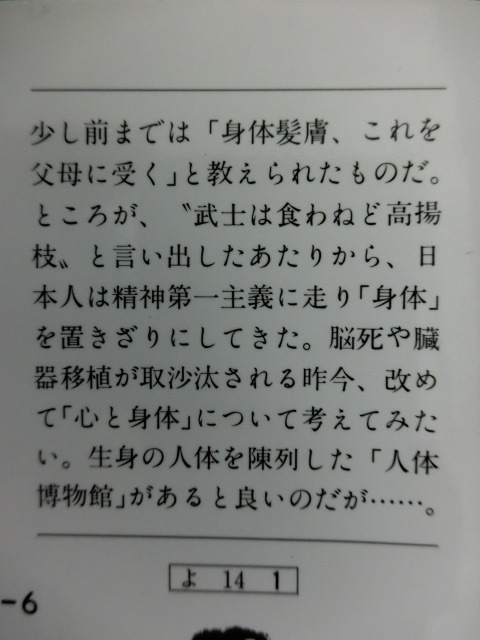 少し前までは「身体髪膚、これを
父母に受く」と教えられたものだ。
ところが、〝武士は食わねど高揚
枝〟と言い出したあたりから、日
本人は精神第一主義に走り「身体」
を置きざりにしてきた。脳死や臓
器移植が取沙汰される昨今、改め
て「心と身体」について考えてみた
い。生身の人体を陳列した「人体
博物館」があると良いのだが……。
よ 14 1
-6